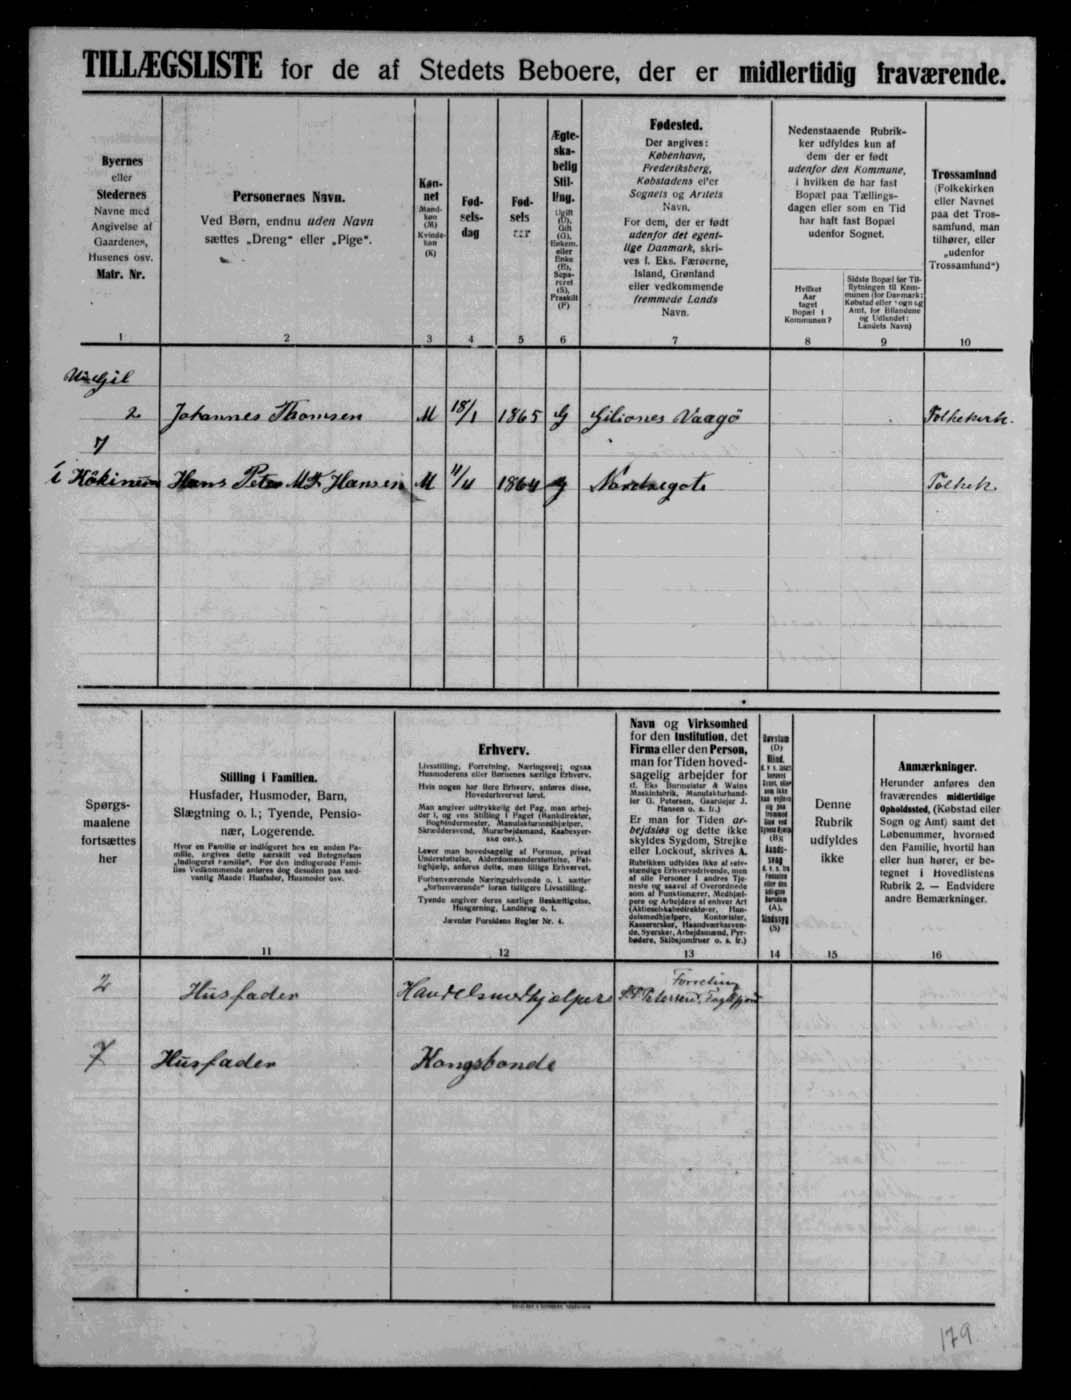 TILLÆGSLISTE for de af Stedets Beboere, der er midlertidig fraværende.
Byernes
eller
Stedernes
Navne med
Angivelse af
Gaardenes,
Husenes osv.
Matr. Nr.
1
Personernes Navn.
Ved Børn, endnu uden Navn
sættes „Dreng“ eller „Pige“.
2
Køn-
net
Mand-
køn
(M)
Kvinde-
køn
(K)
3
Fød-
sels-
dag
4
Fød-
sels
aar
5
Ægte-
ska-
belig
Stil-
ling.
Ugift
(U),
Gift
(G),
Enkem.
eller
Enke
(E),
Sepa-
reret
(S),
Fraskilt
(F)
6
Fødested.
Der angives:
København,
Frederiksberg,
Købstadens eller
Sognets og Amtets
Navn.
For dem, der er født
udenfor det egent-
lige Danmark, skri-
ves f. Eks. Færøerne,
Island, Grønland
eller vedkommende
fremmede Lands
Navn.
7
Nedenstaaende Rubrik-
ker udfyldes kun af
dem der er født
udenfor den Kommune,
i hvilken de har fast
Bopæl paa Tællings-
dagen eller som en Tid
har haft fast Bopæl
udenfor Sognet.
Hvilket
Aar
taget
Bopæl i
Kommunen?
8
Sidste Bopæl før Til-
flytningen til Kom-
munen (for Danmark:
Købstad eller Sogn og
Amt, for Bilandene
og Udlandet:
Landets Navn)
9
Trossamfund
(Folkekirken
eller Navnet
paa det Tros-
samfund, man
tilhører, eller
„udenfor
Trossamfund“)
10
Gil
2 Johannes Thomsen M 18/1 1865 G Giljanes Vaagö Folkekirk.
7
i Kökinum Hans Peter M.F. Hansen M 11/4 1864 G Nordregöte Folkek.
Spørgs-
maalene
fortsættes
her
Stilling i Familien.
Husfader, Husmoder, Barn,
Slægtning o. l.; Tyende, Pensio-
nær, Logerende.
Hvor en Familie er indlogeret hos en anden Fa-
milie, angives dette særskilt ved Betegnelsen
„Indlogeret Familie“. For den indlogerede Fami-
lies Vedkommende anføres dog desuden paa sæd-
vanlig Maade: Husfader, Husmoder osv.
11
Erhverv.
Livsstilling, Forretning, Næringsvej; ogsaa
Husmoderens eller Børnenes særlige Erhverv.
Hvis nogen har flere Erhverv, anføres disse,
Hovederhvervet først.
Man angiver udtrykkelig det Fag, man arbej-
der i, og ens Stilling i Faget (Bankdirektør,
Boghindermester, Manufakturmedhjælper,
Skræddersvend, Murarbejdsmand, Kaabesyer-
ske osv.).
Lever man hovedsagelig af Formue, privat
Understøttelse, Alderdomsunderstøttelse, Fat-
tighjælp, anføres dette, men tillige Erhvervet.
Forhenværende Næringsdrivende o. l. sætter
„forhenværende“ foran tidligere Livsstilling.
Tyende angiver deres særlige Beskæftigelse,
Husgerning, Landbrug o. l.
Jævnfør Forsidens Regler Nr. 4.
12
Navn og Virksomhed
for den Institution, det
Firma eller den Person,
man for Tiden hoved-
sagelig arbejder for
(f. Eks Burmeister & Wains
Maskinfabrik, Manufakturhand-
ler G. Petersen, Gaardejer J.
Hansen o. s. fr.)
Er man for Tiden ar-
bejdsløs og dette ikke
skyldes Sygdom, Strejke
eller Lockout, skrives A.
Rubrikken udfyldes ikke af selv-
stændige Erhvervsdrivende, men
af alle Personer i andres Tje-
neste og saavel af Overordnede
som af Funktionærer, Medhjæl-
pere og Arbejdere af enhver Art
(Aktieselskabsdirektører, Han-
delsmedhjælpere, Kontorister,
Kassererske, Haandværkssven-
de, Syersker, Arbejdsmænd, Fyr-
bødere, Skibsjomfruer o. s. fr.)
13
Døvstum
(D)
Blind,
(B);
Aands-
svag
(A),
Sindssyg
(S)
14
Denne
Rubrik
udfyldes
ikke
15
Anmærkninger.
Herunder anføres den
fraværendes midlertidige
Opholdssted, (Købstad eller
Sogn og Amt) samt det
Løbenummer, hvormed
den Familie, hvortil han
eller hun hører, er be-
tegnet i Hovedlistens
Rubrik 2. — Endvidere
andre Bemærkninger.
16
2 Husfader Handelsmedhjælpere Forretning
Petersens, Fuglefjord
7 Husfader Kongsbonde
179